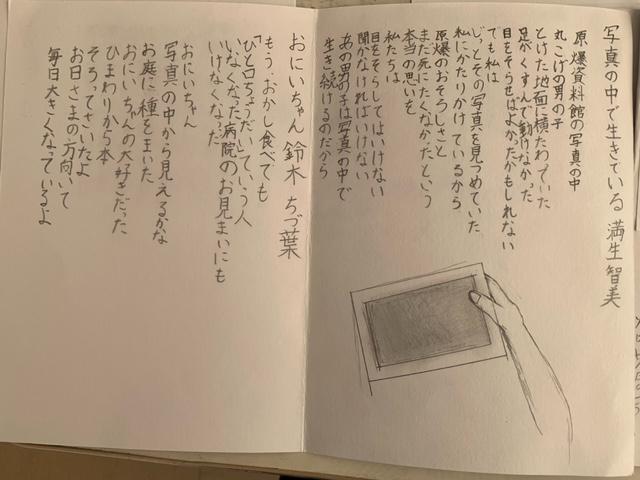 写真の中で生きている 満生智美
原爆資料館の写真の中
丸こげの男の子
とけた地面に横たわっていた
足がくすんで動けなかった
目をそらせばよかったかもしれない
でも私は
じっとその写真を見つめていた
私にかたりかけているから
原爆のおそろしさと
まだ死にたくなかったという
本当の思いを
私たちは
目をそらしてはいけない
聞かなければいけない
あの男の子は写真の中で
生き続けるのだから
おにいちゃん 鈴木ちづ葉
「もう、おかし食べても
ひと口ちょうだい」って、いう人
いなくなった病院のお見まいにも
いけなくなった
おにいちゃん
写真の中から見えるかな
お庭に種をまいた
おにいちゃんの大好きだった
ひまわりが六本
そろってさいたよ
お日さまの方向いて
毎日大きくなっているよ